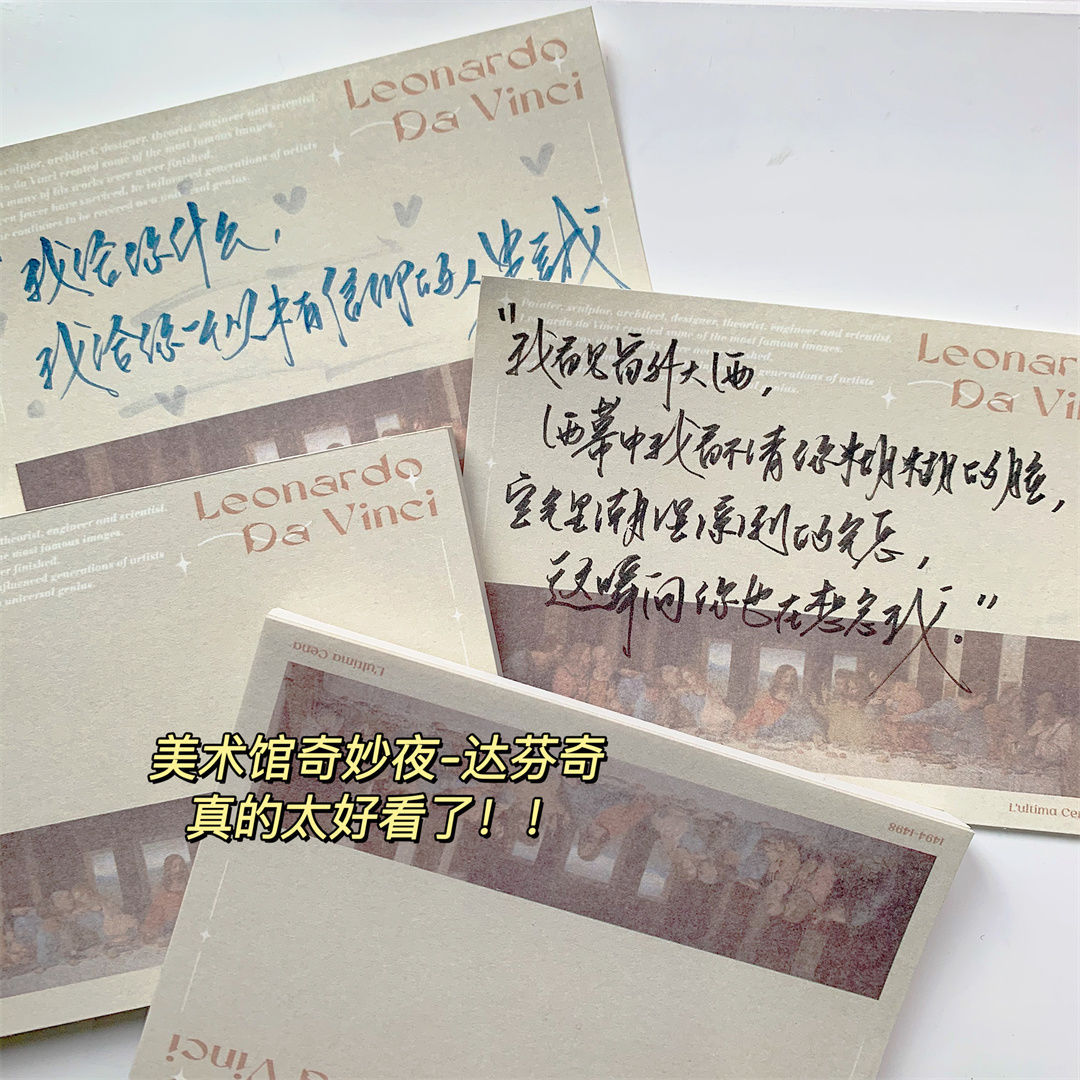 Leonardo
Da Vinci
sculptor, architect, designer, theorist, engineer and scientist.
da Vinci created some of the most famous images.
many of his works were never finished.
fewer have survived, he influenced generations of artists
continues to be revered
我给你什么，
我给你一从未有信仰的人忠诚
Painter, sculptor, architect, designer, theorist, engineer and scientist.
Leonardo da Vinci created some of the most famous images.
works were never finished.
generations of artists
Leonar
Da Vi
"我看见窗外大雨，
雨幕中我看不清你模糊的脸，
空气里潮湿深刻的
这瞬间你也在想念我。"
L'ultima Cen
Leonardo
Da Vinci
theorist, engineer and scientist.
the most famous images.
never finished.
influenced generations of artists
universal genius.
L'ultima Cena
1494-1498
a Vinci
美术馆奇妙夜-达芬奇
真的太好看了！！